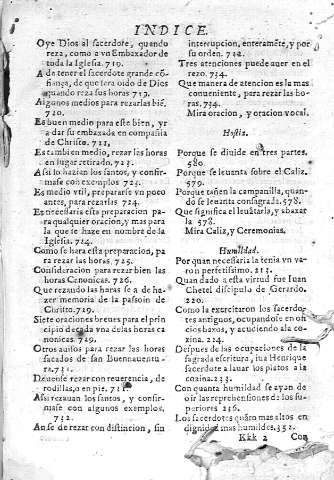 INDICE.
Oye Dios al sacerdote, quando
reza, como a vn Embaxador de
toda la Iglesia. 719.
A de tener el sacerdote grande cõ-
fiança, de que sera oido de Dios
quando reza sus horas 719.
Algunos medios para rezarlas biẽ.
720.
Es buen medio para este bien, yr
a dar su embaxada en compañia
de Christo. 721,
Es tambien medio, rezar las horas
en lugar retirado. 723.
Assi lo hazian los santos, y confir-
mase con exemplos 723.
Es medio vtil, prepararse vn poco
antes, para rezarlas 724.
Es necessaria esta preparacion pa-
ra qualquier oracion, y mas para
la que se haze en nombre de la
Iglesia. 724.
Como se hara esta preparacion, pa
ra rezar las horas. 725.
Consideracion para rezar bien las
horas Canonicas. 726.
Que rezando las horas se a de ha-
zer memoria de la passoin de
Christo. 729.
Siete oraciones breues para el prin
cipio de cada vna de las horas ca
nonicas. 729.
Otros auisos para rezar las horas
sacados de san Buenauentu-
ra. 731.
Deuense rezar con reuerencia, de
rodillas, o en pie. 731.
Assi rezauan los santos, y confir-
mase con algunos exemplos.
732.
Anse de rezar con distincion, sin
interrupcion, enteramẽte, y por
su orden. 732.
Tres atenciones puede auer en el
rezo. 734.
Que manera de atencion es la mas
conueniente, para rezar las ho-
ras. 734.
Mira oracion, y oracion vocal.
Hostia.
Porque se diuide en tres partes.
580.
Porque se leuanta sobre el Caliz.
579.
Porque tañen la campanilla, quan-
do se leuanta consagrada. 578.
Que significa el leuãtarla, y abaxar
la 578.
Mira Caliz, y Ceremonias.
Humildad.
Por quan necessaria la tenia vn va-
ron perfetissimo. 213.
Quan dado a esta virtud fue Iuan
Chetel discipula de Gerardo.
220.
Como la exercitaron los sacerdo-
tes antiguos, ocupandose en ofi-
cios baxos, y acudiendo ala co-
zina. 224.
Despues de las ocupaciones de la
sagrada escritura, iua Henrique
sacerdote a lauar los platos a la
cozina. 233.
Con quanta humildad se ayan de
oir las reprehensiones de los su-
periores 236.
Los sacerdotes quãto mas altos en
dignidad mas humildes. 352.
Kkk 2 Con